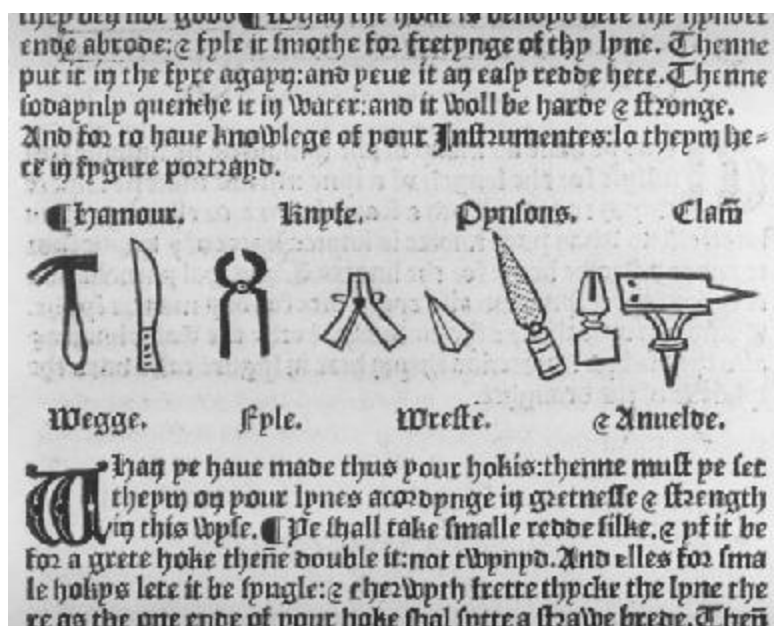 they ben not good ¶ Whan the hoke is bendyd bete the hynder
ende abrode: & fyle it smothe for fretynge of thy lyne. Thenne
put it in the fyre agayn: and yeue it an easy redde hete. Thenne
sodaynly quenche it in water: and it woll be harde & stronge.
And for to haue knowlege of your Instrumentes: lo theym he=
re in fygure portrayd.
¶ Hamour. Knyfe. Pynsons. Clam̄
Wegge. Fyle. Wreste. & Anuelde.
Whan ye haue made thus your hokis: thenne must ye set
theym on your lynes acordynge in gretnesse & strength
in this wyse. ¶ Ye shall take smalle redde silke. & yf it be
for a grete hoke then̄e double it: not twynyd. And elles for sma
le hokys lete it be syngle: & therwyth frette thycke the lyne the
re as the one ende of your hoke shal sytte a strawe brede. Then̄